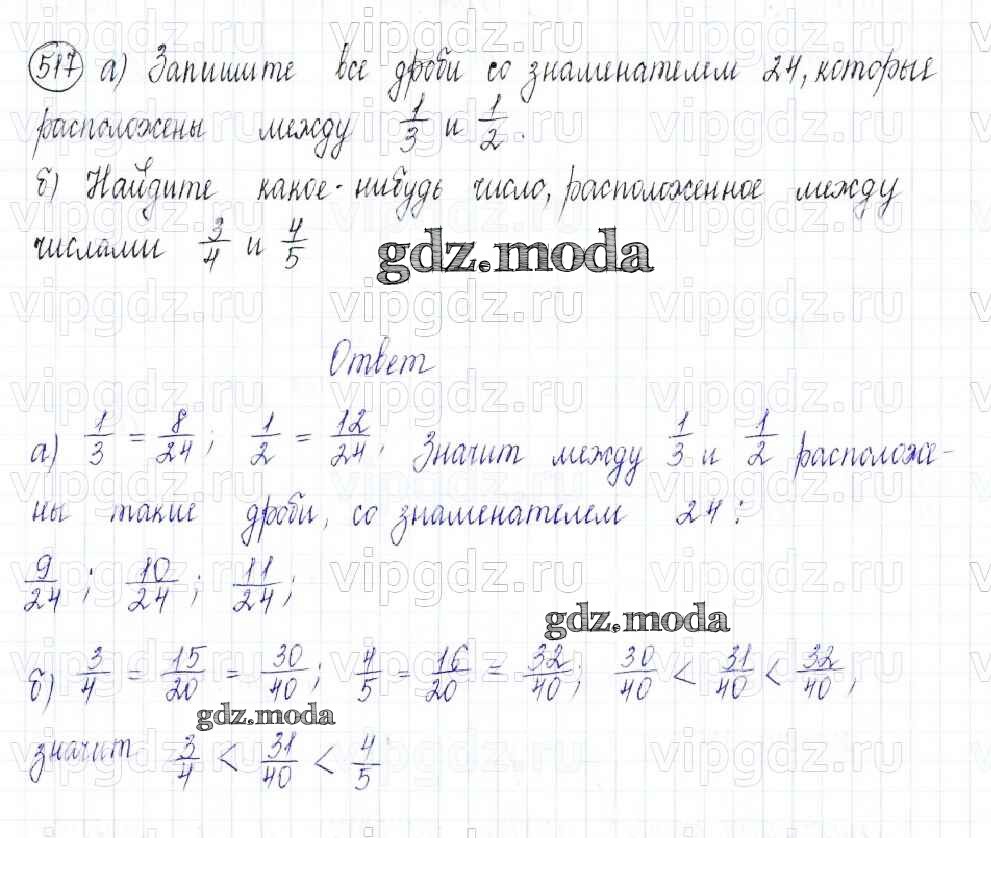 517 а) Запишите все дроби со знаменателем 24, которые
расположены между 1/3 и 1/2.
б) Найдите какое-нибудь число, расположенное между
числами 3/4 и 4/5
gdz.moda
Ответ
а) 1/3 = 8/24; 1/2 = 12/24; Значит между 1/3 и 1/2 расположе-
ны такие дроби, со знаменателем 24:
9/24; 10/24; 11/24;
gdz.moda
б) 3/4 = 15/20 = 30/40; 4/5 = 16/20 = 32/40; 30/40 < 31/40 < 32/40;
gdz.moda
значит 3/4 < 31/40 < 4/5
vipgdz.ru